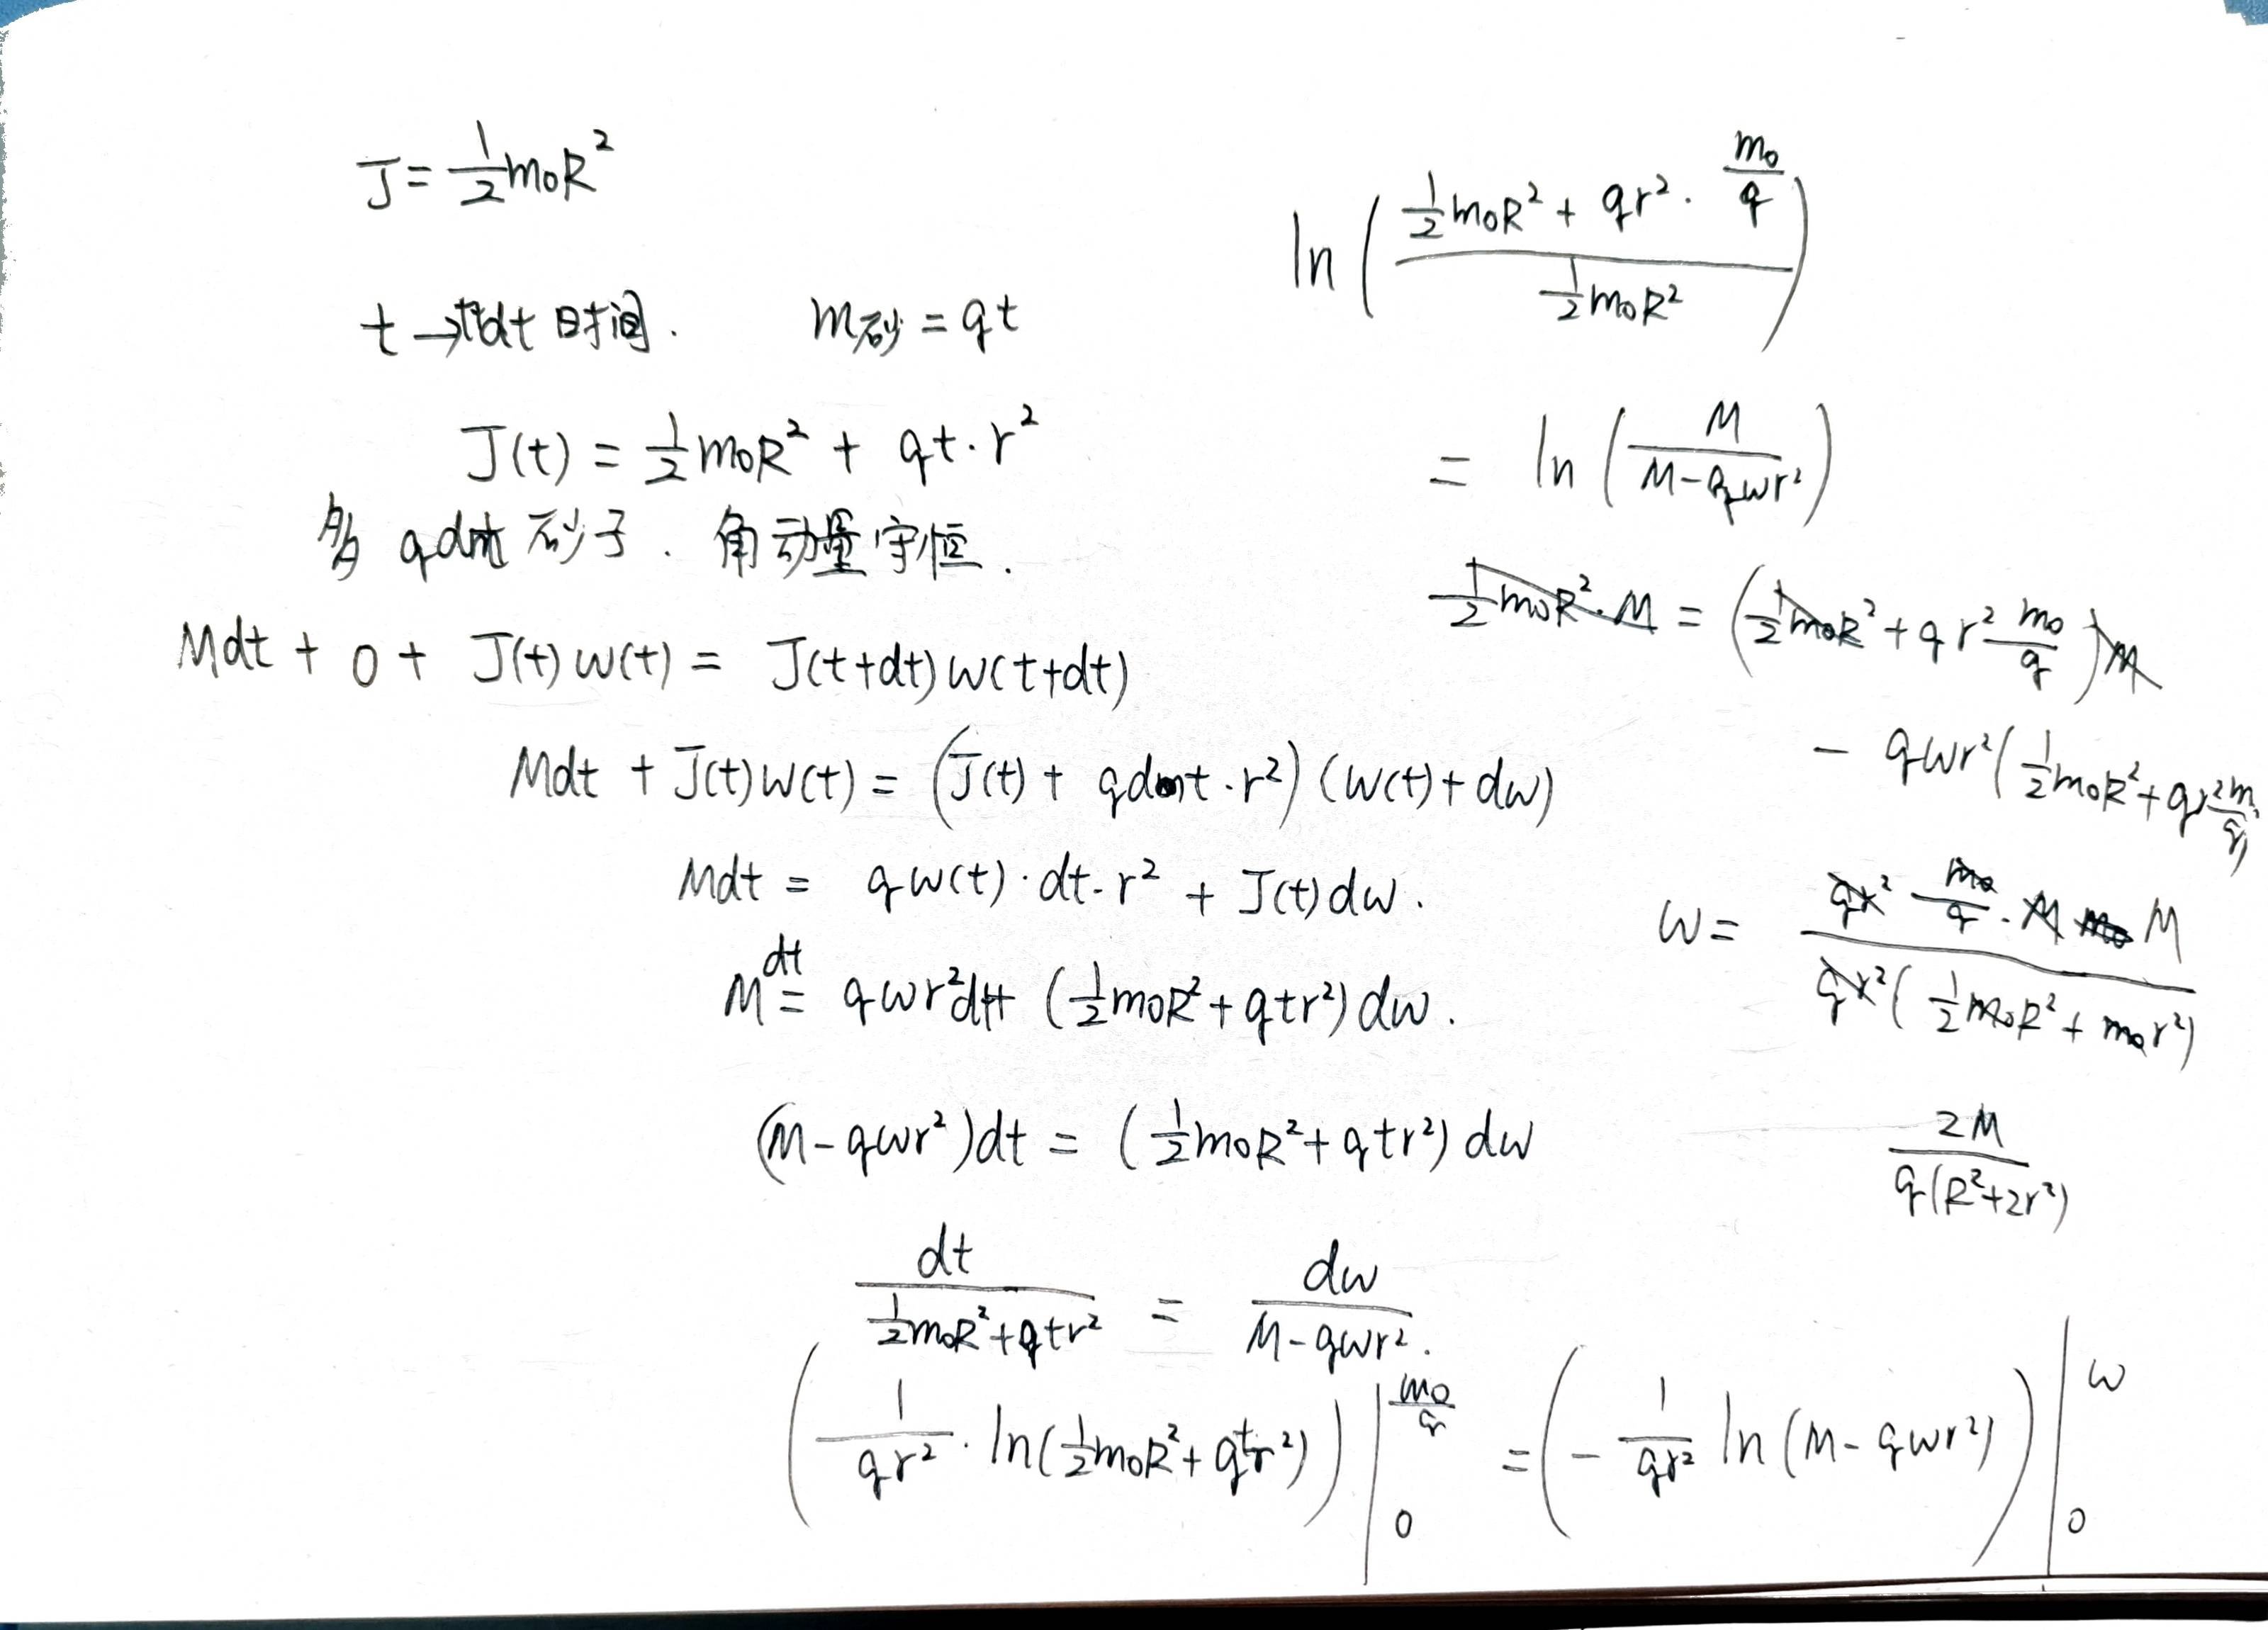 J = 1/2 m₀R²
t → t+dt 时间. m砂 = qt
J(t) = 1/2 m₀R² + qt·r²
多 qdt 砂子. 角动量守恒.
Mdt + 0 + J(t)w(t) = J(t+dt)w(t+dt)
Mdt + J(t)w(t) = (J(t) + qdt·r²)(w(t)+dw)
Mdt = qw(t)·dt·r² + J(t)dw.
Mdt = qwr²dt + (1/2 m₀R² + qtr²)dw.
(M-qwr²)dt = (1/2 m₀R² + qtr²)dw
dt/(1/2 m₀R² + qtr²) = dw/(M-qwr²).
(1/(qr²) · ln(1/2 m₀R² + qtr²)) |₀^(m₀/q) = (-1/(qr²) ln(M-qwr²)) |₀^w
ln((1/2 m₀R² + qr²·m₀/q)/(1/2 m₀R²))
= ln(M/(M-qwr²))
1/2 m₀R²·M = (1/2 m₀R² + qr² m₀/q)M
- qwr²(1/2 m₀R² + qr² m₀/q)
w = (qr² m₀/q · M M)/(qr²(1/2 m₀R² + m₀r²))
2M/(q(R²+2r²))